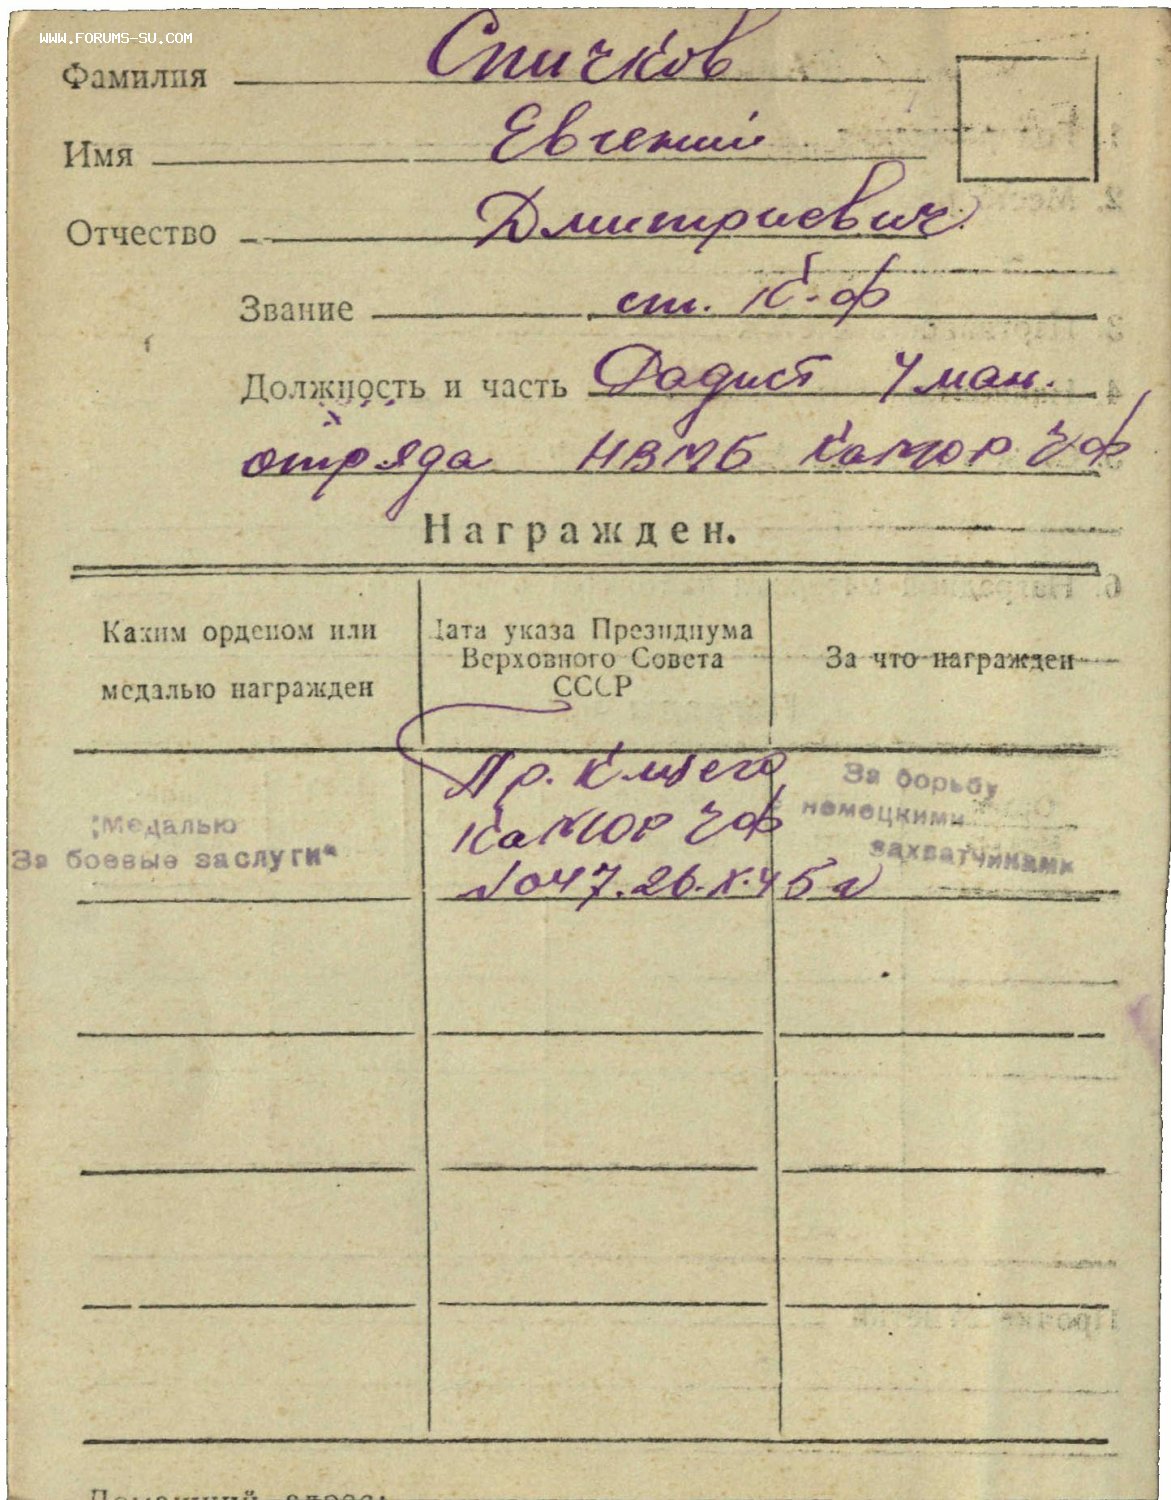 WWW.FORUMS-SU.COM
Фамилия Спичков
Имя Евгений
Отчество Дмитриевич
Звание ст. к-ф
Должность и часть Радист 4 ман.
отряда НВМБ КаМОР ЧФ
Награжден.
Каким орденом или медалью награжден
Дата указа Президиума Верховного Совета СССР
За что награжден
"Медалью
За боевые заслуги"
Пр. К-щего
КаМОР ЧФ
№047. 26.X.45 г
За борьбу
с немецкими
захватчиками
Домашний адрес: